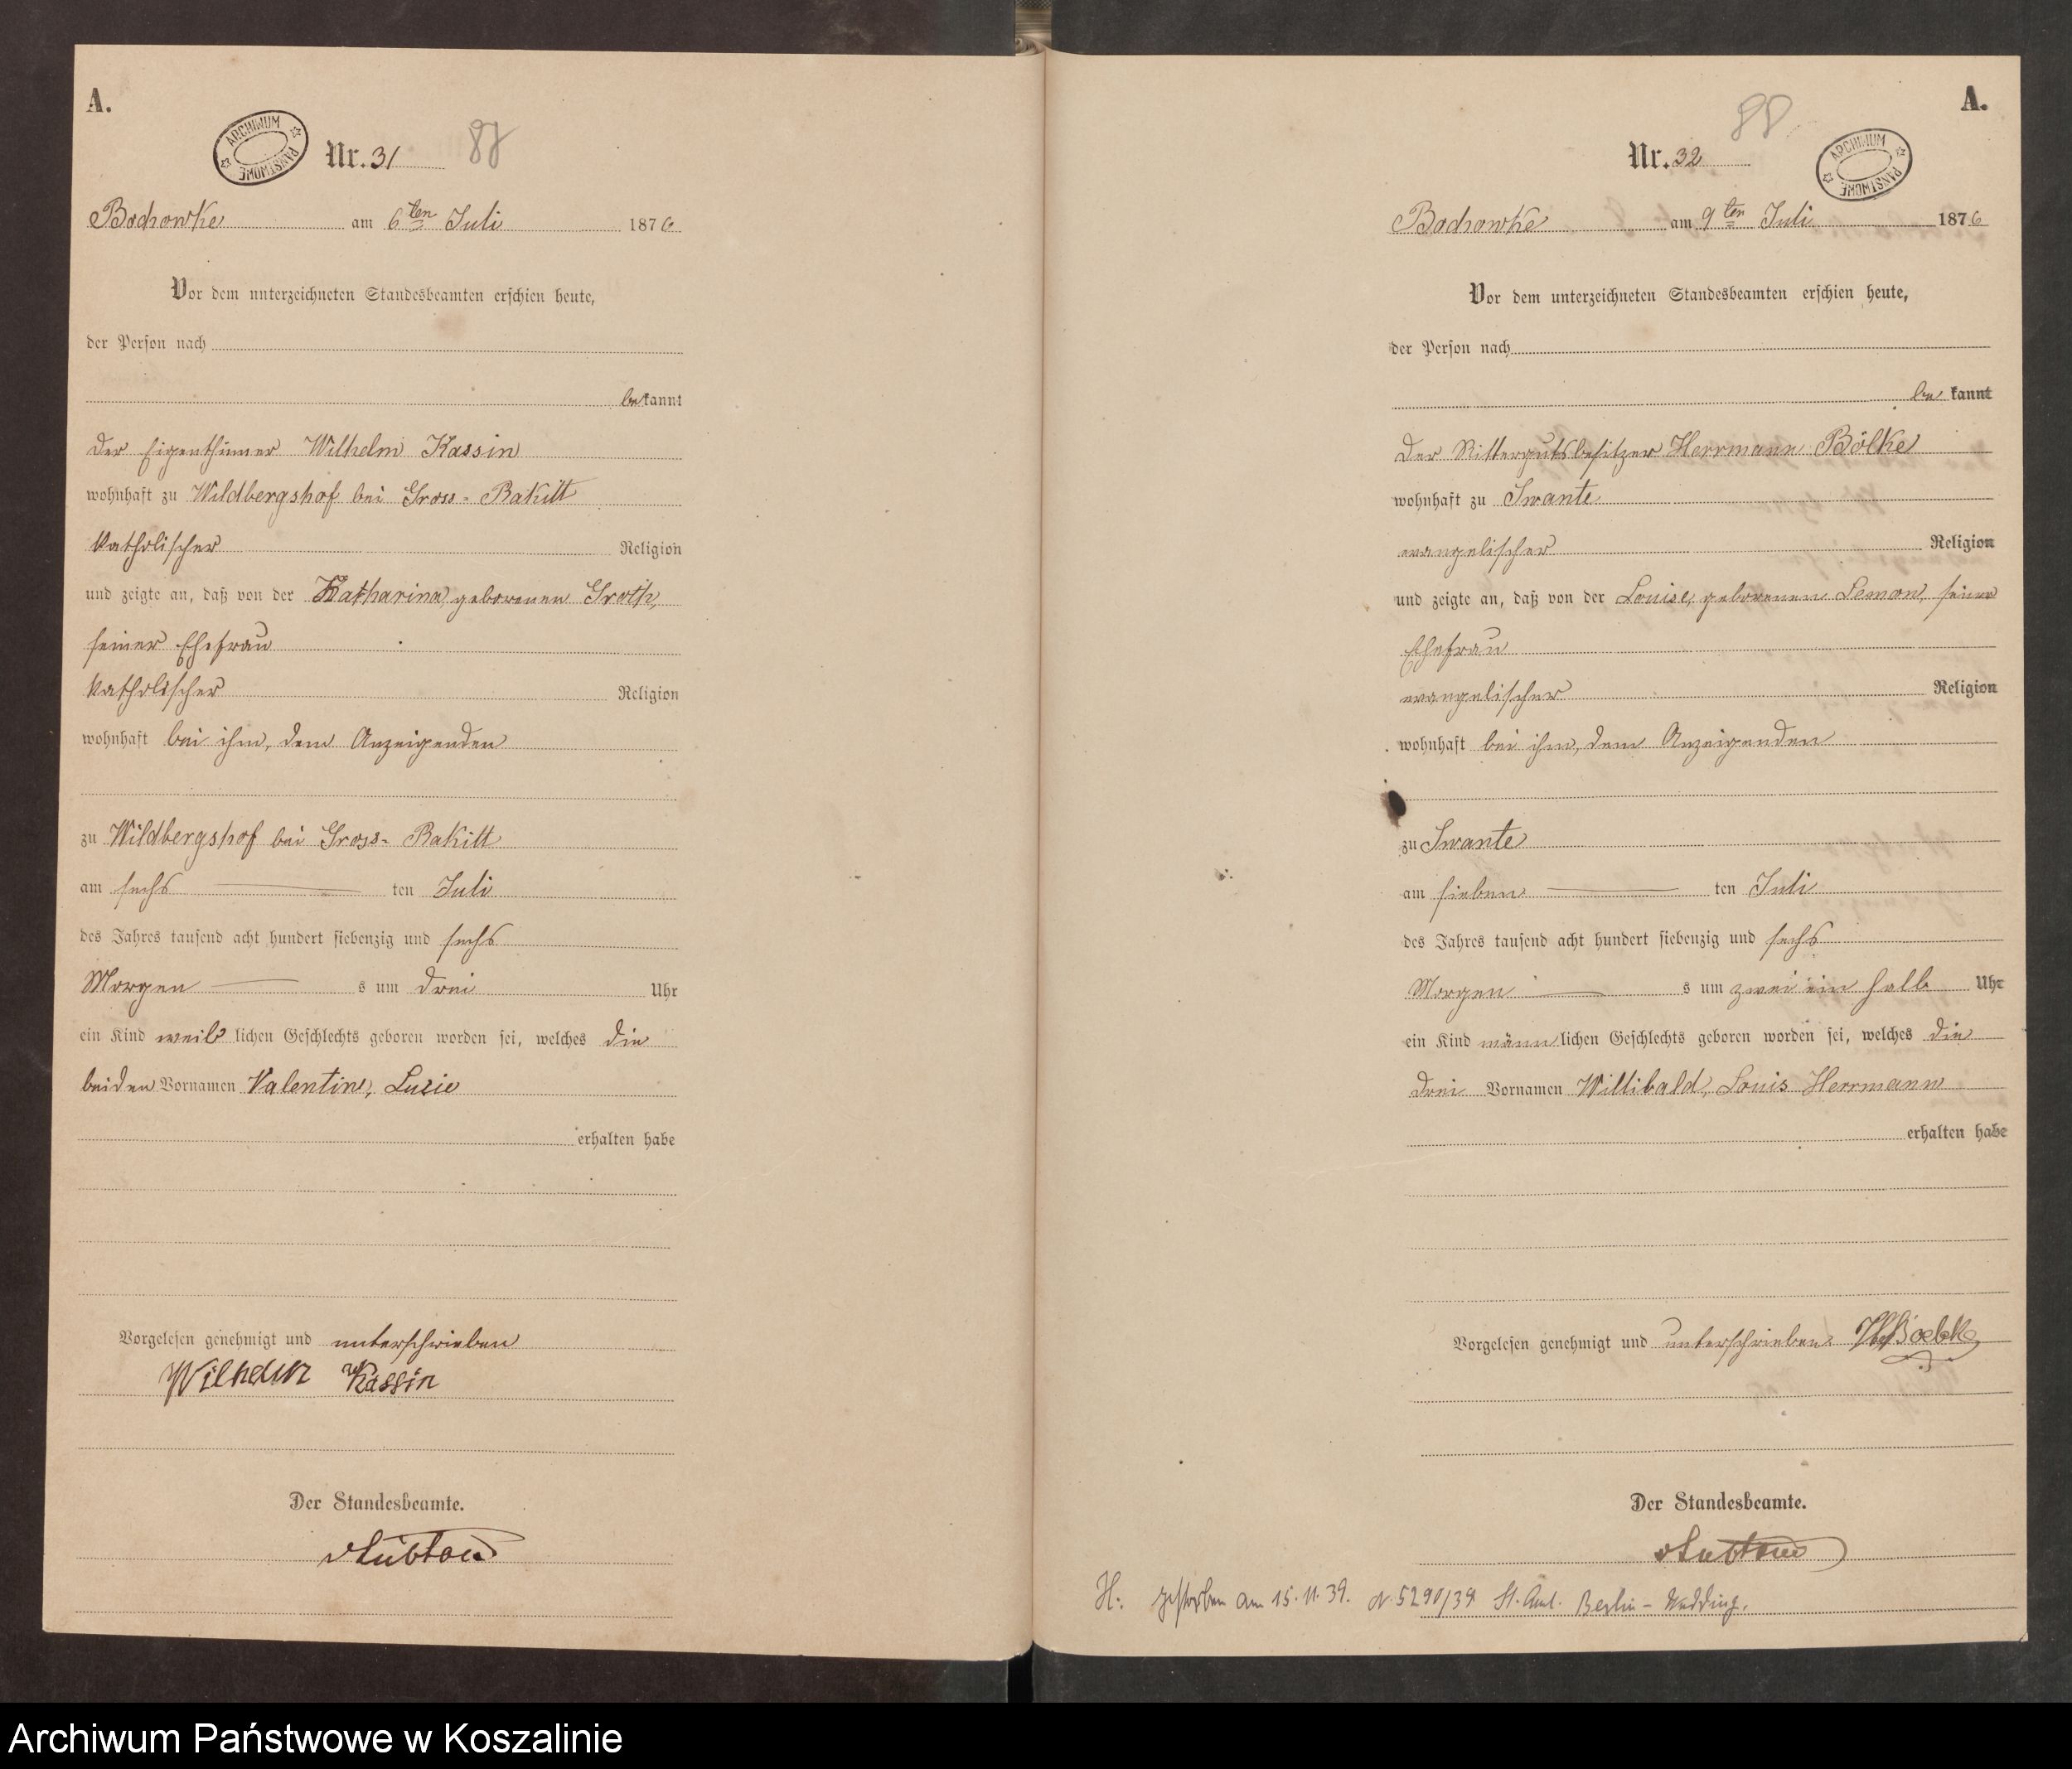 A.
ARCHIWUM PAŃSTWOWE
Nr. 31
87
Bochowke am 6ten Juli 1876
Vor dem unterzeichneten Standesbeamten erschien heute,
der Person nach
bekannt
der Eigenthümer Wilhelm Kassin
wohnhaft zu Wildbergshof bei Gross-Rakitt
katholischer Religion
und zeigte an, daß von der Katharina, geborenen Groth,
seiner Ehefrau
katholischer Religion
wohnhaft bei ihm, dem Anzeigenden
zu Wildbergshof bei Gross-Rakitt
am sechs ten Juli
des Jahres tausend acht hundert siebenzig und sechs
Morgen s um drei Uhr
ein Kind weib lichen Geschlechts geboren worden sei, welches die
beiden Vornamen Valentine, Luzie
erhalten habe
Vorgelesen genehmigt und unterschrieben
Wilhelm Kassin
Der Standesbeamte.
A.
88
Nr. 32
ARCHIWUM PAŃSTWOWE
Bochowke am 9ten Juli 1876
Vor dem unterzeichneten Standesbeamten erschien heute,
der Person nach
be kannt
der Rittergutsbesitzer Herrmann Bölke
wohnhaft zu Swante
evangelischer Religion
und zeigte an, daß von der Louise, geborenen Leman, seiner
Ehefrau
evangelischer Religion
wohnhaft bei ihm, dem Anzeigenden
zu Swante
am sieben ten Juli
des Jahres tausend acht hundert siebenzig und sechs
Morgen s um zwei ein halb Uhr
ein Kind männ lichen Geschlechts geboren worden sei, welches die
drei Vornamen Willibald, Louis Herrmann
erhalten habe
Vorgelesen genehmigt und unterschrieben. Boelke
Der Standesbeamte.
H: gestorben am 15.11.39. N. 5290/39 St. Amt. Berlin-Wedding.
Archiwum Państwowe w Koszalinie